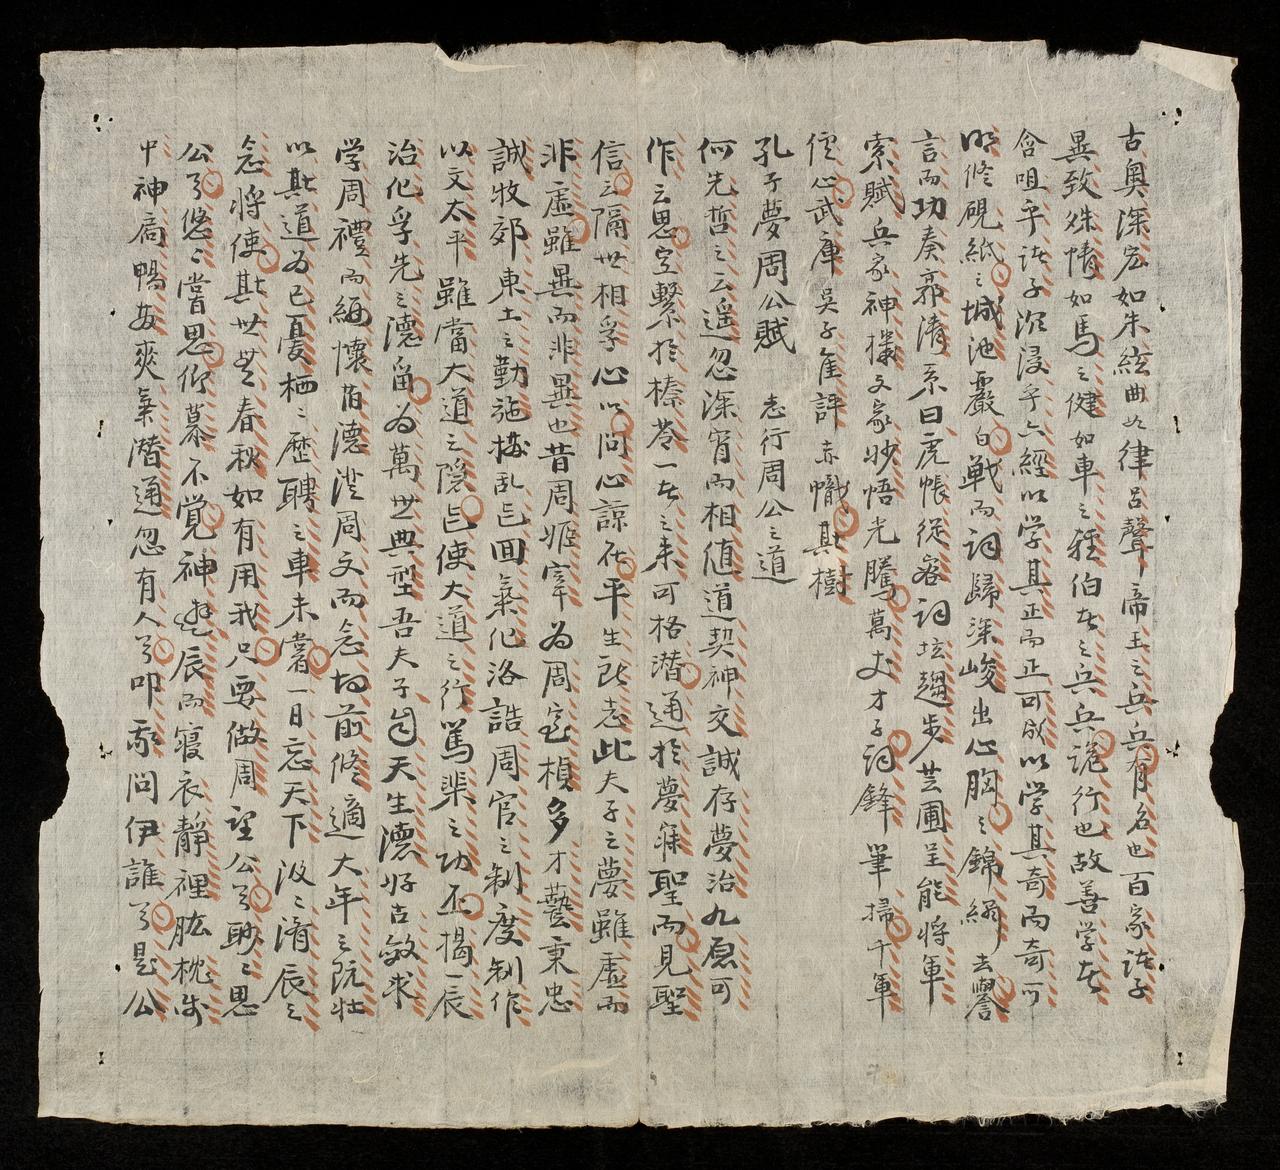 古奥深宏如朱絃曲如律呂聲帝王之兵兵有名也百家諸子
異致殊情如馬之健如車之 伯者之兵兵詭行也故善学者
含咀乎諸子沉浸乎六經以学其正而正可啟以学其奇而奇可
明修硯紙之城池嚴白戦而詞歸深峻出心胸之錦綉去譽
言而功奏廓清系曰虎帳従容詞坛趨步芸圃呈能将軍
索賦兵家神機文家妙悟光騰萬丈才子詞鋒筆掃千軍
儒心武庫吳子隹評赤幟其樹
孔子夢周公賦 志行周公之道
何先哲之云遥忽深宵而相值道契神交誠存夢治九原可
作云思空繫於榛苓一者之来可格潜通於夢寐聖而見聖
信之隔世相孚心以問心諒在平生所志此夫子之夢雖虚而
非虚雖異而非異也昔周姬宰為周室楨多才藝秉忠
誠牧郊東土之勤施撥乱亡回氣化洛誥周官之制度制作
以文太平雖當大道之隠亡使大道之行篤棐之功丕揭一辰
治化孚先之德畱為萬世典型吾夫子自天生德好古敏求
学周禮而緬懷昔德澄周文而念切前修適大年之既壮
以斯道為己憂栖〻歷聘之車未嘗一日忘天下汲〻淆辰之
念将使斯世 春秋如有用我只要做周望公兮耿〻思
公兮悠〻嘗思仰慕不覚神 辰而寝衣靜裡肱枕
中神喬暢 爽氣潜通忽有人兮叩 敬問伊誰兮是公